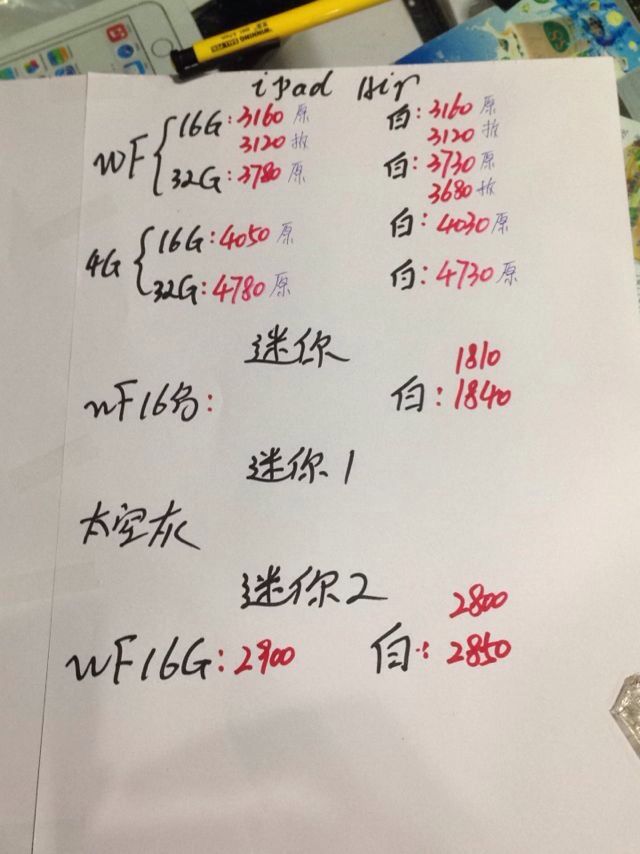 iPad Air
WF 16G: 3160 原 白: 3160 原
3120 拆 3120 拆
32G: 3780 原 白: 3730 原
3680 拆
4G 16G: 4050 原 白: 4030 原
32G: 4780 原 白: 4730 原
迷你
1810
WF16G: 白: 1840
迷你1
太空灰
迷你2
2800
WF16G: 2900 白: 2850